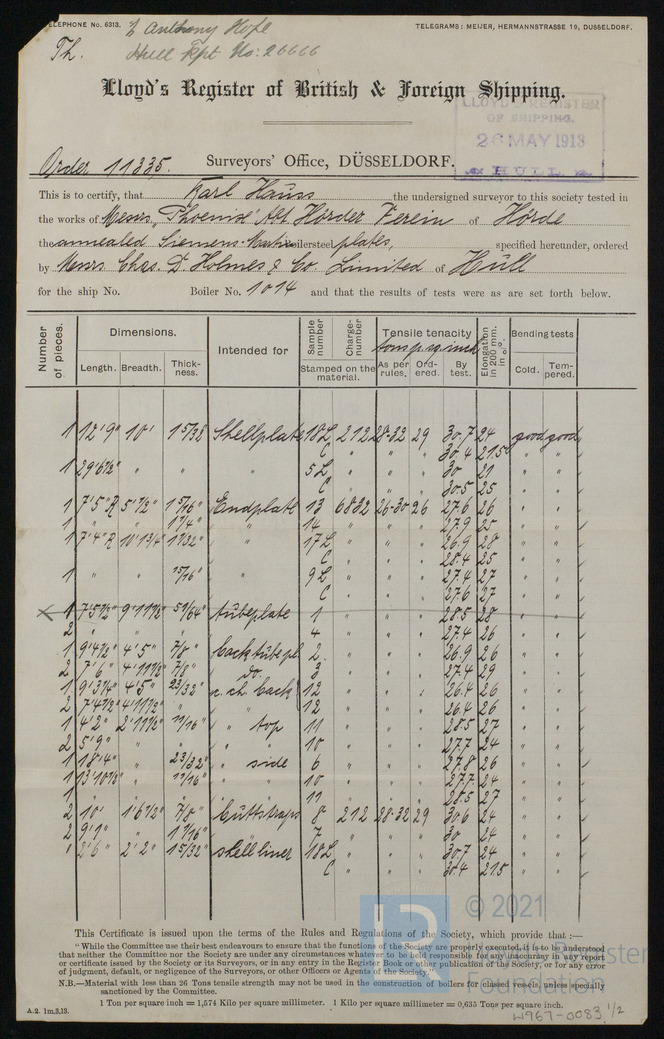 TELEPHONE No. 6313.
TELEGRAMS: MEIJER, HERMANNSTRASSE 19, DUSSELDORF.
Anthony Hope
Th. Hull Rpt No: 26666
Lloyd's Register of British & Foreign Shipping.
LLOYD'S REGISTER
OF SHIPPING.
26 MAY 1913
HULL
Order 11335. Surveyors' Office, DÜSSELDORF.
This is to certify, that Karl Hauss the undersigned surveyor to this society tested in
the works of Messrs, Phoenix Abt Hörder Verein of Hörde
the annealed Siemens-Martin boilersteel plates, specified hereunder, ordered
by Messrs. Chas. D. Holmes & Co. Limited of Hull
for the ship No. Boiler No. 1014 and that the results of tests were as are set forth below.
Number of pieces. Dimensions. Intended for Sample number Charge-number Tensile tenacity Elongation in 200 mm. in o/o. Bending tests
tons p. sq. inch
Length. Breadth. Thick-ness. Stamped on the material. As per rules. Ord-ered. By test. Cold. Tem-pered.
1 12'9" 10' Shellplate 18 L 212 28-32 29 30.7 24 good good
C " " " 30.4 21.5 " "
1 29'6½" " " " 5 L " " " 30 21 " "
C " " " 30.5 25 " "
1 7'5" R 5'½" 1 5/16" Endplate 13 6832 26-30 26 27.6 26 " "
1 " " 1 1/4" " 14 " " " 27.9 25 " "
1 7'4" R 10'1¾" 1 1/32" " 17 L " " " 26.9 28 " "
C " " " 28.4 25 " "
1 " " 15/16" " 9 L " " " 27.4 27 " "
C " " " 27.6 27 " "
1 7'5½" 9'11½" 59/64" tubeplate 1 " " " 28.5 28 " "
2 " " " " 4 " " " 27.4 26 " "
1 9'4½" 4'5" 7/8" back tube pl. 2 " " " 26.9 26 " "
2 7'6" 4'11½" 7/8" do. 3 " " " 27.4 29 " "
1 9'3¼" 4'5" 23/32" c. ch. back 12 " " " 26.4 26 " "
2 7'4½" 4'11½" " 12 " " " 26.4 26 " "
1 4'2" 2'11½" 11/16" " top 11 " " " 28.5 27 " "
2 5'9" " " " " 10 " " " 27.7 24 " "
1 18'4" " 23/32" " side 6 " " " 27.8 26 " "
1 13'10½" " 11/16" " " 10 " " " 27.7 24 " "
1 " " " 11 " " " 28.5 27 " "
2 10' 1'6½" 7/8" Buttstraps 8 212 28-32 29 30.6 24 " "
2 9'1" " 1 1/16" " 7 " " " 30 24 " "
1 2'6" 2'2" 1 5/32" shell liner 18 L " " " 30.7 24 " "
C " " " 30.4 21.5 " "
This Certificate is issued upon the terms of the Rules and Regulations of the Society, which provide that :—
" While the Committee use their best endeavours to ensure that the functions of the Society are properly executed, it is to be understood
that neither the Committee nor the Society are under any circumstances whatever to be held responsible for any inaccuracy in any report
or certificate issued by the Society or its Surveyors, or in any entry in the Register Book or other publication of the Society, or for any error
of judgment, default, or negligence of the Surveyors, or other Officers or Agents of the Society."
N.B.—Material with less than 26 Tons tensile strength may not be used in the construction of boilers for classed vessels, unless specially
sanctioned by the Committee.
1 Ton per square inch = 1,574 Kilo per square millimeter. 1 Kilo per square millimetre = 0,635 Tons per square inch.
A.2. 1m,3,13.
W967-0083 1/2
© 2021
LR
Lloyd's Register
Foundation